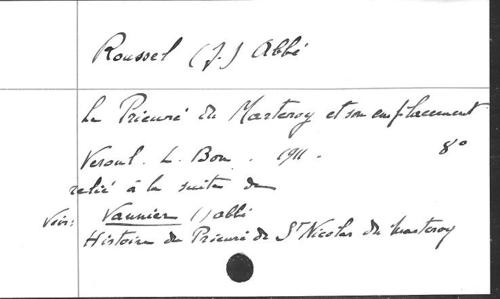 Roussel (J.) Abbé
Le Prieuré du Marteroy et son emplacement
Vesoul. L. Bon. 1911. 8°
relié à la suite de
Voir: Vannier () abbé
Histoire du Prieuré de St Nicolas du Marteroy